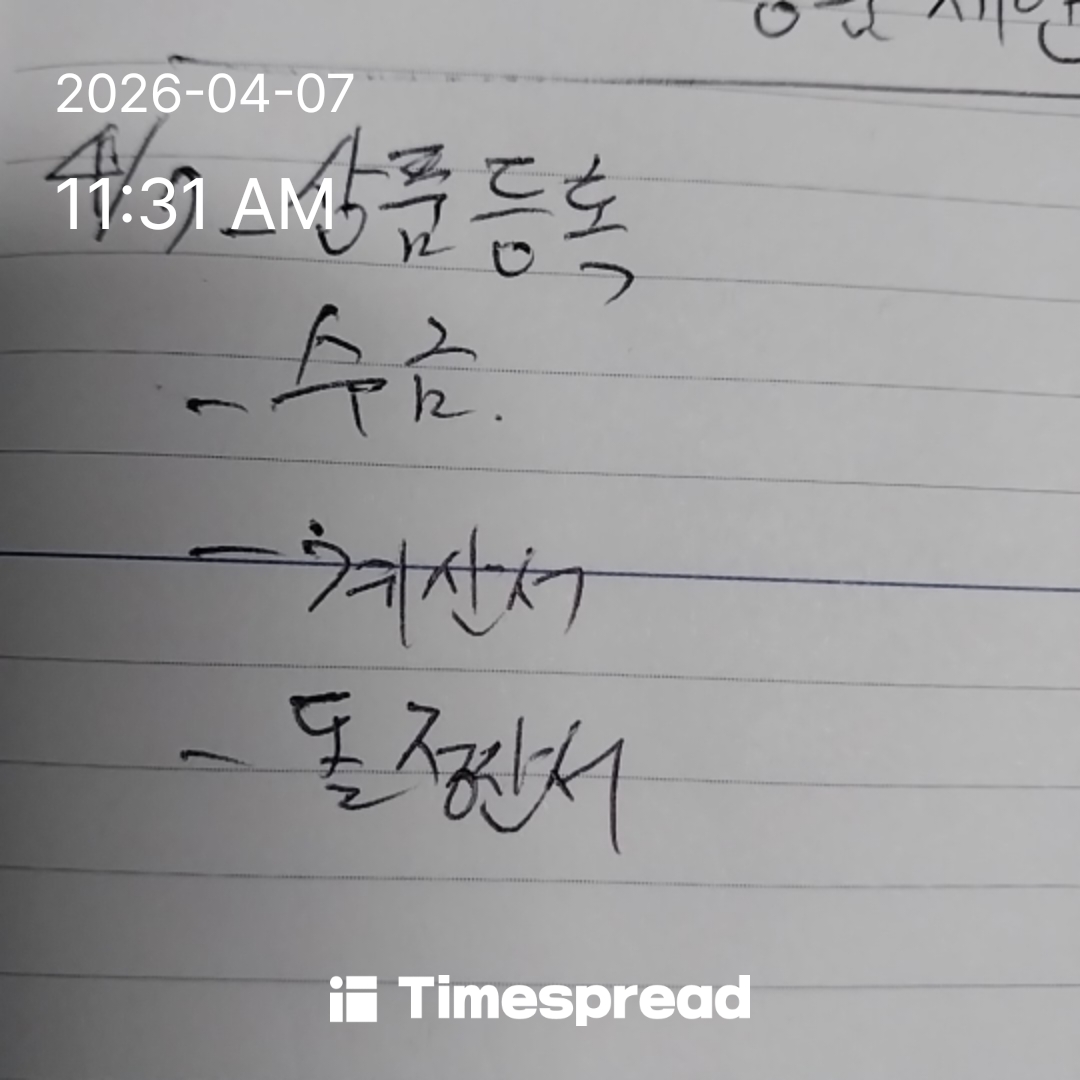 2026-04-07
11:31 AM
4/7 - 상품등록
- 수금.
- 계산서
- 돌정산서
Timespread